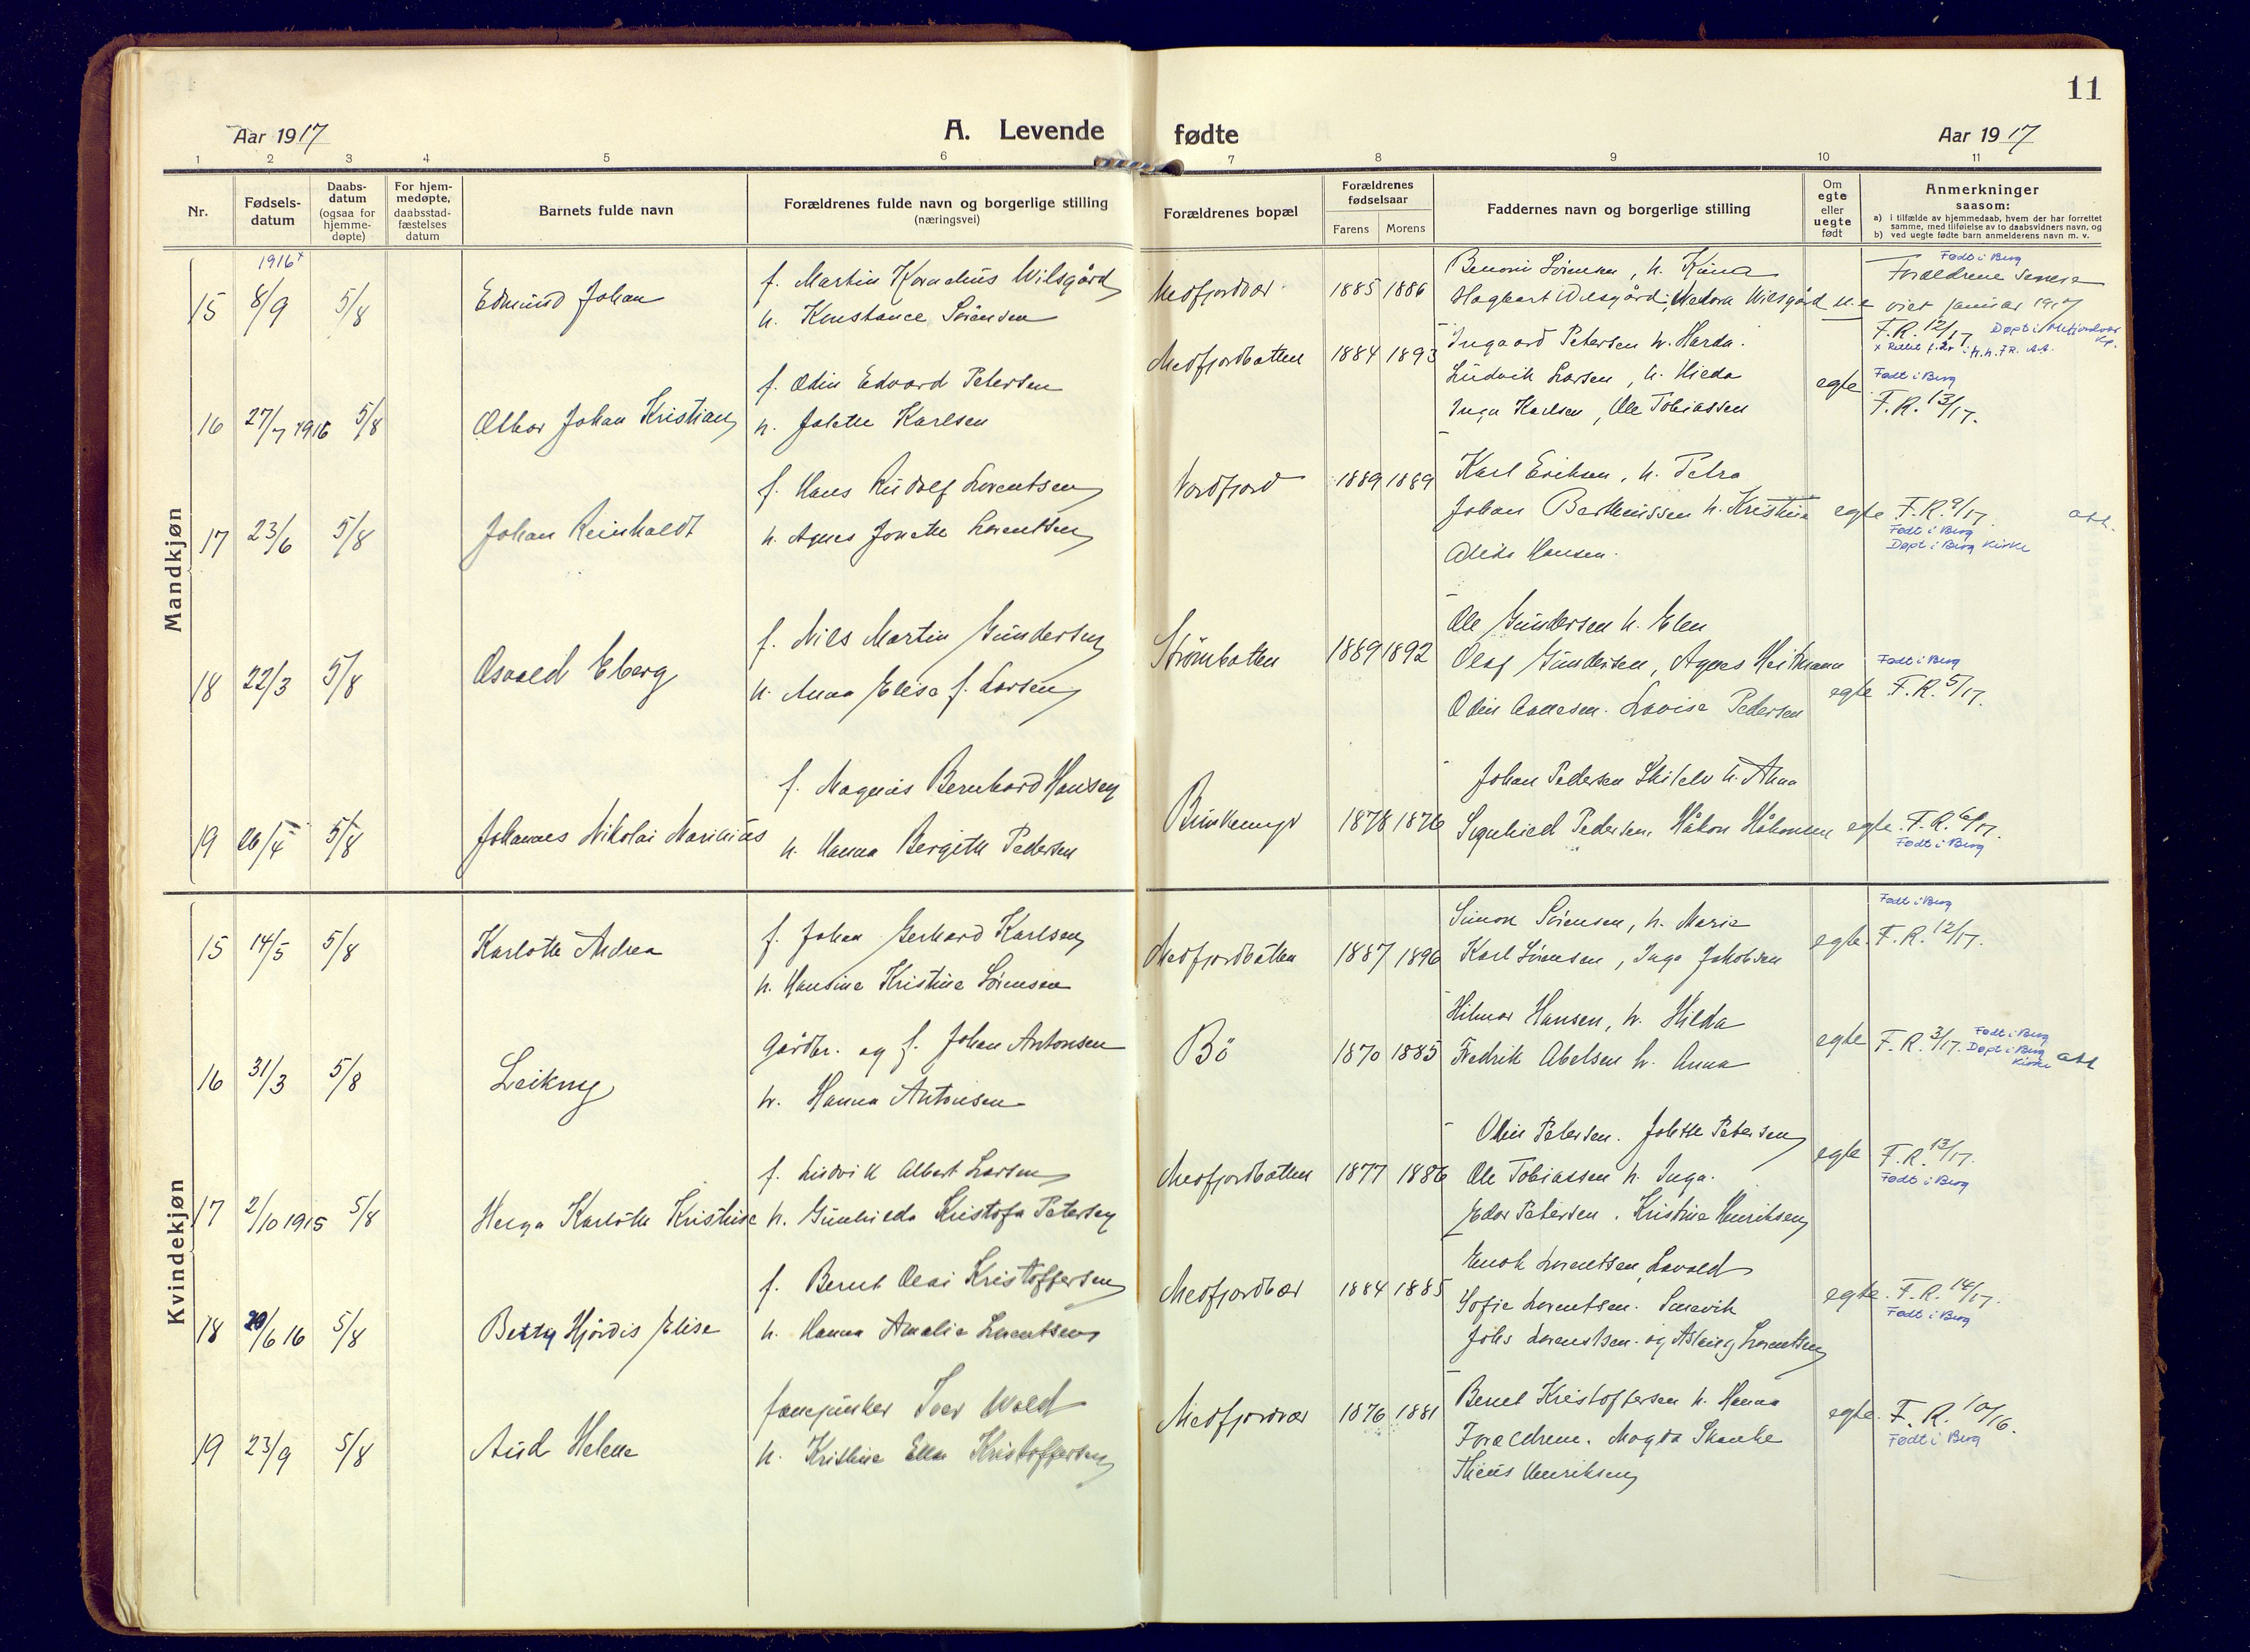 11
Aar 1917
A. Levende fødte
Aar 1917
1 2 3 4 5 6 7 8 9 10 11
Nr.
Fødsels-
datum
Daabs-
datum
(ogsaa for
hjemme-
døpte)
For hjem-
medøpte,
daabsstad-
fæstelses
datum
Barnets fulde navn
Forældrenes fulde navn og borgerlige stilling
(næringsvei)
Forældrenes bopæl
Forældrenes
fødselsaar
Farens Morens
Faddernes navn og borgerlige stilling
Om
egte
eller
uegte
født
Anmerkninger
saasom:
a) i tilfælde av hjemmedaab, hvem der har forrettet
samme, med tilføielse av to daabsvidners navn, og
b) ved uegte fødte barn anmelderens navn m. v.
Mandkjøn
1916x
15 8/9 5/8 Edmund Johan
f. Martin Kornelius Wilsgård
h. Konstance Sørensen
Medfjordvær 1885 1886
Benoni Sørensen, h.
Hagbart Wilsgård, Wilsgård u.e
Født i Berg
Forældrene senere
viet januar 1917
F.R. 12/17. Døpt i Mefjordvær
Kp.
16 27/7 1916 5/8 Johan Kristian
f. Odin Edvard Petersen
h. Jolette Karlsen
Medfjordbotten 1884 1893
Ingvard Petersen h.
Ludvik Larsen, h.
Inga Karlsen, Ole Tobiassen
egte
Født i Berg
F.R. 13/17.
17 23/6 5/8 Johan Reinholdt
f. Hans Rudolf Lorentsen
h. Agnes Jonette Lorentsen
Nordfjord 1889 1889
Karl Eriksen, h. Petra
Johan Bertheussen h. Kristine
Hansen.
egte F.R. 9/17.
Født i Berg
Døpt i Berg Kirke
att.
18 22/3 5/8 Osvald Eberg
f. Nils Martin Gundersen
h. Anna Elise f. Larsen
Strømbotten 1889 1892
Ole Gundersen h. Elen
Olaf Gundersen, Agnes Heitmann
Odin Lovise Pedersen
egte
Født i Berg
F.R. 5/17.
19 26/4 5/8 Johannes Nikolai Marinius
f. Magnus Bernhard Hansen
h. Hanna Bergitte Pedersen
1878 1876
Johan Pedersen h. Anna
Pedersen, Håkon Håkonsen
egte. F.R. 6/17.
Født i Berg
Kvindekjøn
15 14/5 5/8 Karlotte Andrea
f. Johan Gerhard Karlsen
h. Hansine Kristine Sørensen
Medfjordbotten 1887 1896
Simon Sørensen, h. Marie
Karl Sørensen, Inga Jakobsen
egte.
Født i Berg
F.R. 12/17.
16 31/3 5/8 Leikny
Gårdbr. og f. Johan Antonsen
h. Hanna Antonsen
Bö 1870 1885
Hilmar Hansen, h. Hilda
Fredrik Abelsen h. Anna
egte F.R. 3/17.
Født i Berg
Døpt i Berg
Kirke
att
17 2/10 1915 5/8 Helga Karlotte Kristine
f. Ludvik Albert Larsen
h. Gunhilda Kristofa Petersen
Medfjordbotten 1877 1886
Odin Petersen. Jolette Petersen
Ole Tobiassen h. Inga.
Edor Petersen. Kristine Henriksen
egte F.R. 13/17.
Født i Berg
18 20/6 16 5/8 Betty Hjördis Elise
f. Bernt Olai Kristoffersen
h. Hanna Amalie Lorentsen
Medfjordvær 1884 1885
Enok Lorentsen, Lavold
Sofie Lorentsen. Senevik
Johs Lorentsen. og Aslaug Lorentsen
egte. F.R. 14/17.
Født i Berg
19 23/9 5/8 Aud Helene
fanejunker Iver Wold
h. Kristine Ellen Kristoffersen
Medfjordvær 1876 1881
Bernt Kristoffersen h. Hanna
Forældrene. Magda Skanke
Theus Henriksen
egte. F.R. 10/16.
Født i Berg